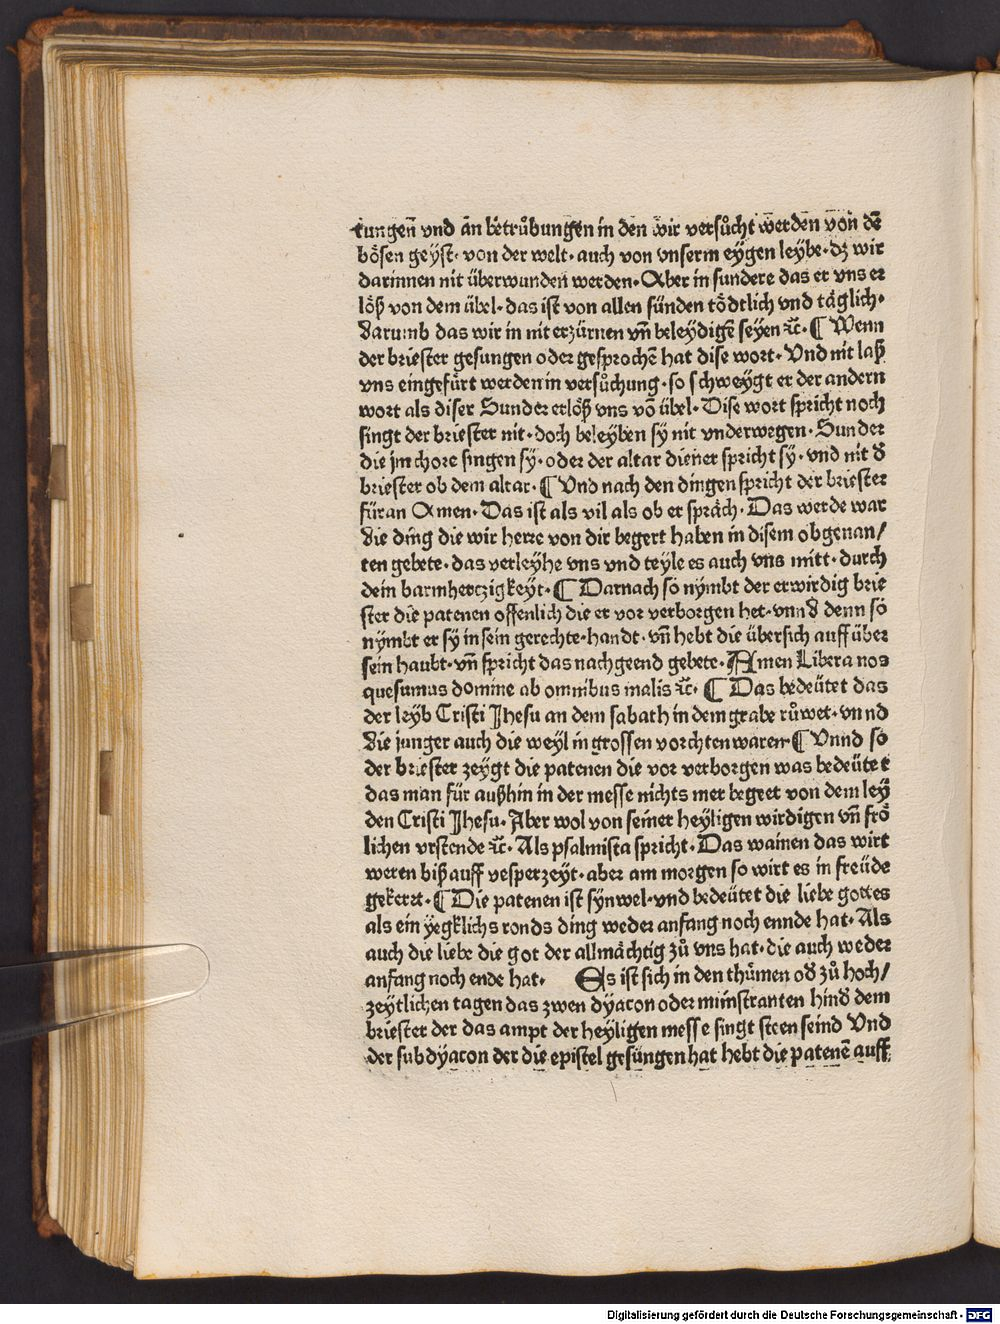 tungen̄ vnd an betrůbungen in den wir versůcht werden von dē
bösen geyst· von der welt· auch von vnserm eygen leybe· dz wir
darinnen nit überwunden werden· Aber in sundere das er vns er
löß von dem übel· das ist von allen sünden tödtlich vnd täglich·
darumb das wir in nit erzürnen vn̄ beleydigē seyen ⁊c̄· ¶ Wenn
der briester gesungen oder gesprochē hat dise wort· Vnd nit laß
vns eingefürt werden in versůchung· so schweygt er der andern
wort als diser Sunder erlöß vns vō übel· Dise wort spricht noch
singt der briester nit· doch beleyben sy nit vnderwegen· Sunder
die jm chore singen sy· oder der altar diener spricht sy· vnd nit d̄
briester ob dem altar· ¶ Vnd nach den dingen spricht der briester
füran Amen· Das ist als vil als ob er spräch· Das werde war
die ding die wir herre von dir begert haben in disem obgenan/
ten gebete· das verleyhe vns vnd teyle es auch vns mitt· durch
dein barmherczigkeyt· ¶ Darnach so nymbt der erwirdig brie
ster die patenen offenlich die er vor verborgen het· vnnd̄ denn so
nymbt er sy in sein gerechte· handt· vn̄ hebt die übersich auff über
sein haubt· vn̄ spricht das nachgeend gebete· Amen Libera nos
quesumus domine ab omnibus malis ⁊c̄· ¶ Das bedeütet das
der leyb Cristi Jhesu an dem sabath in dem grabe růwet· vnnd
die junger auch die weyl in grossen vorchten waren ¶ Vnnd so
der briester zeygt die patenen die vor verborgen was bedeütet
das man für außhin in der messe nichts mer begeet von dem ley
den Cristi Jhesu· Aber wol von seiner heyligen wirdigen vn̄ frö
lichen vrstende ⁊c̄· Als psalmista spricht· Das wainen das wirt
weren biß auff vesperzeyt· aber am morgen so wirt es in freüde
gekeret· ¶ Die patenen ist synwel· vnd bedeütet die liebe gottes
als ein yegklichs ronds ding weder anfang noch ennde hat· Als
auch die liebe die got der allmächtig zů vns hat· die auch weder
anfang noch ende hat· Es ist sich in den thůmen od̄ zů hoch/
zeytlichen tagen das zwen dyacon oder ministranten hind̄ dem
briester der das ampt der heyligen messe singt steen seind Vnd
der subdyacon der die epistel gesungen hat hebt die patenē auff
Digitalisierung gefördert durch die Deutsche Forschungsgemeinschaft - DFG